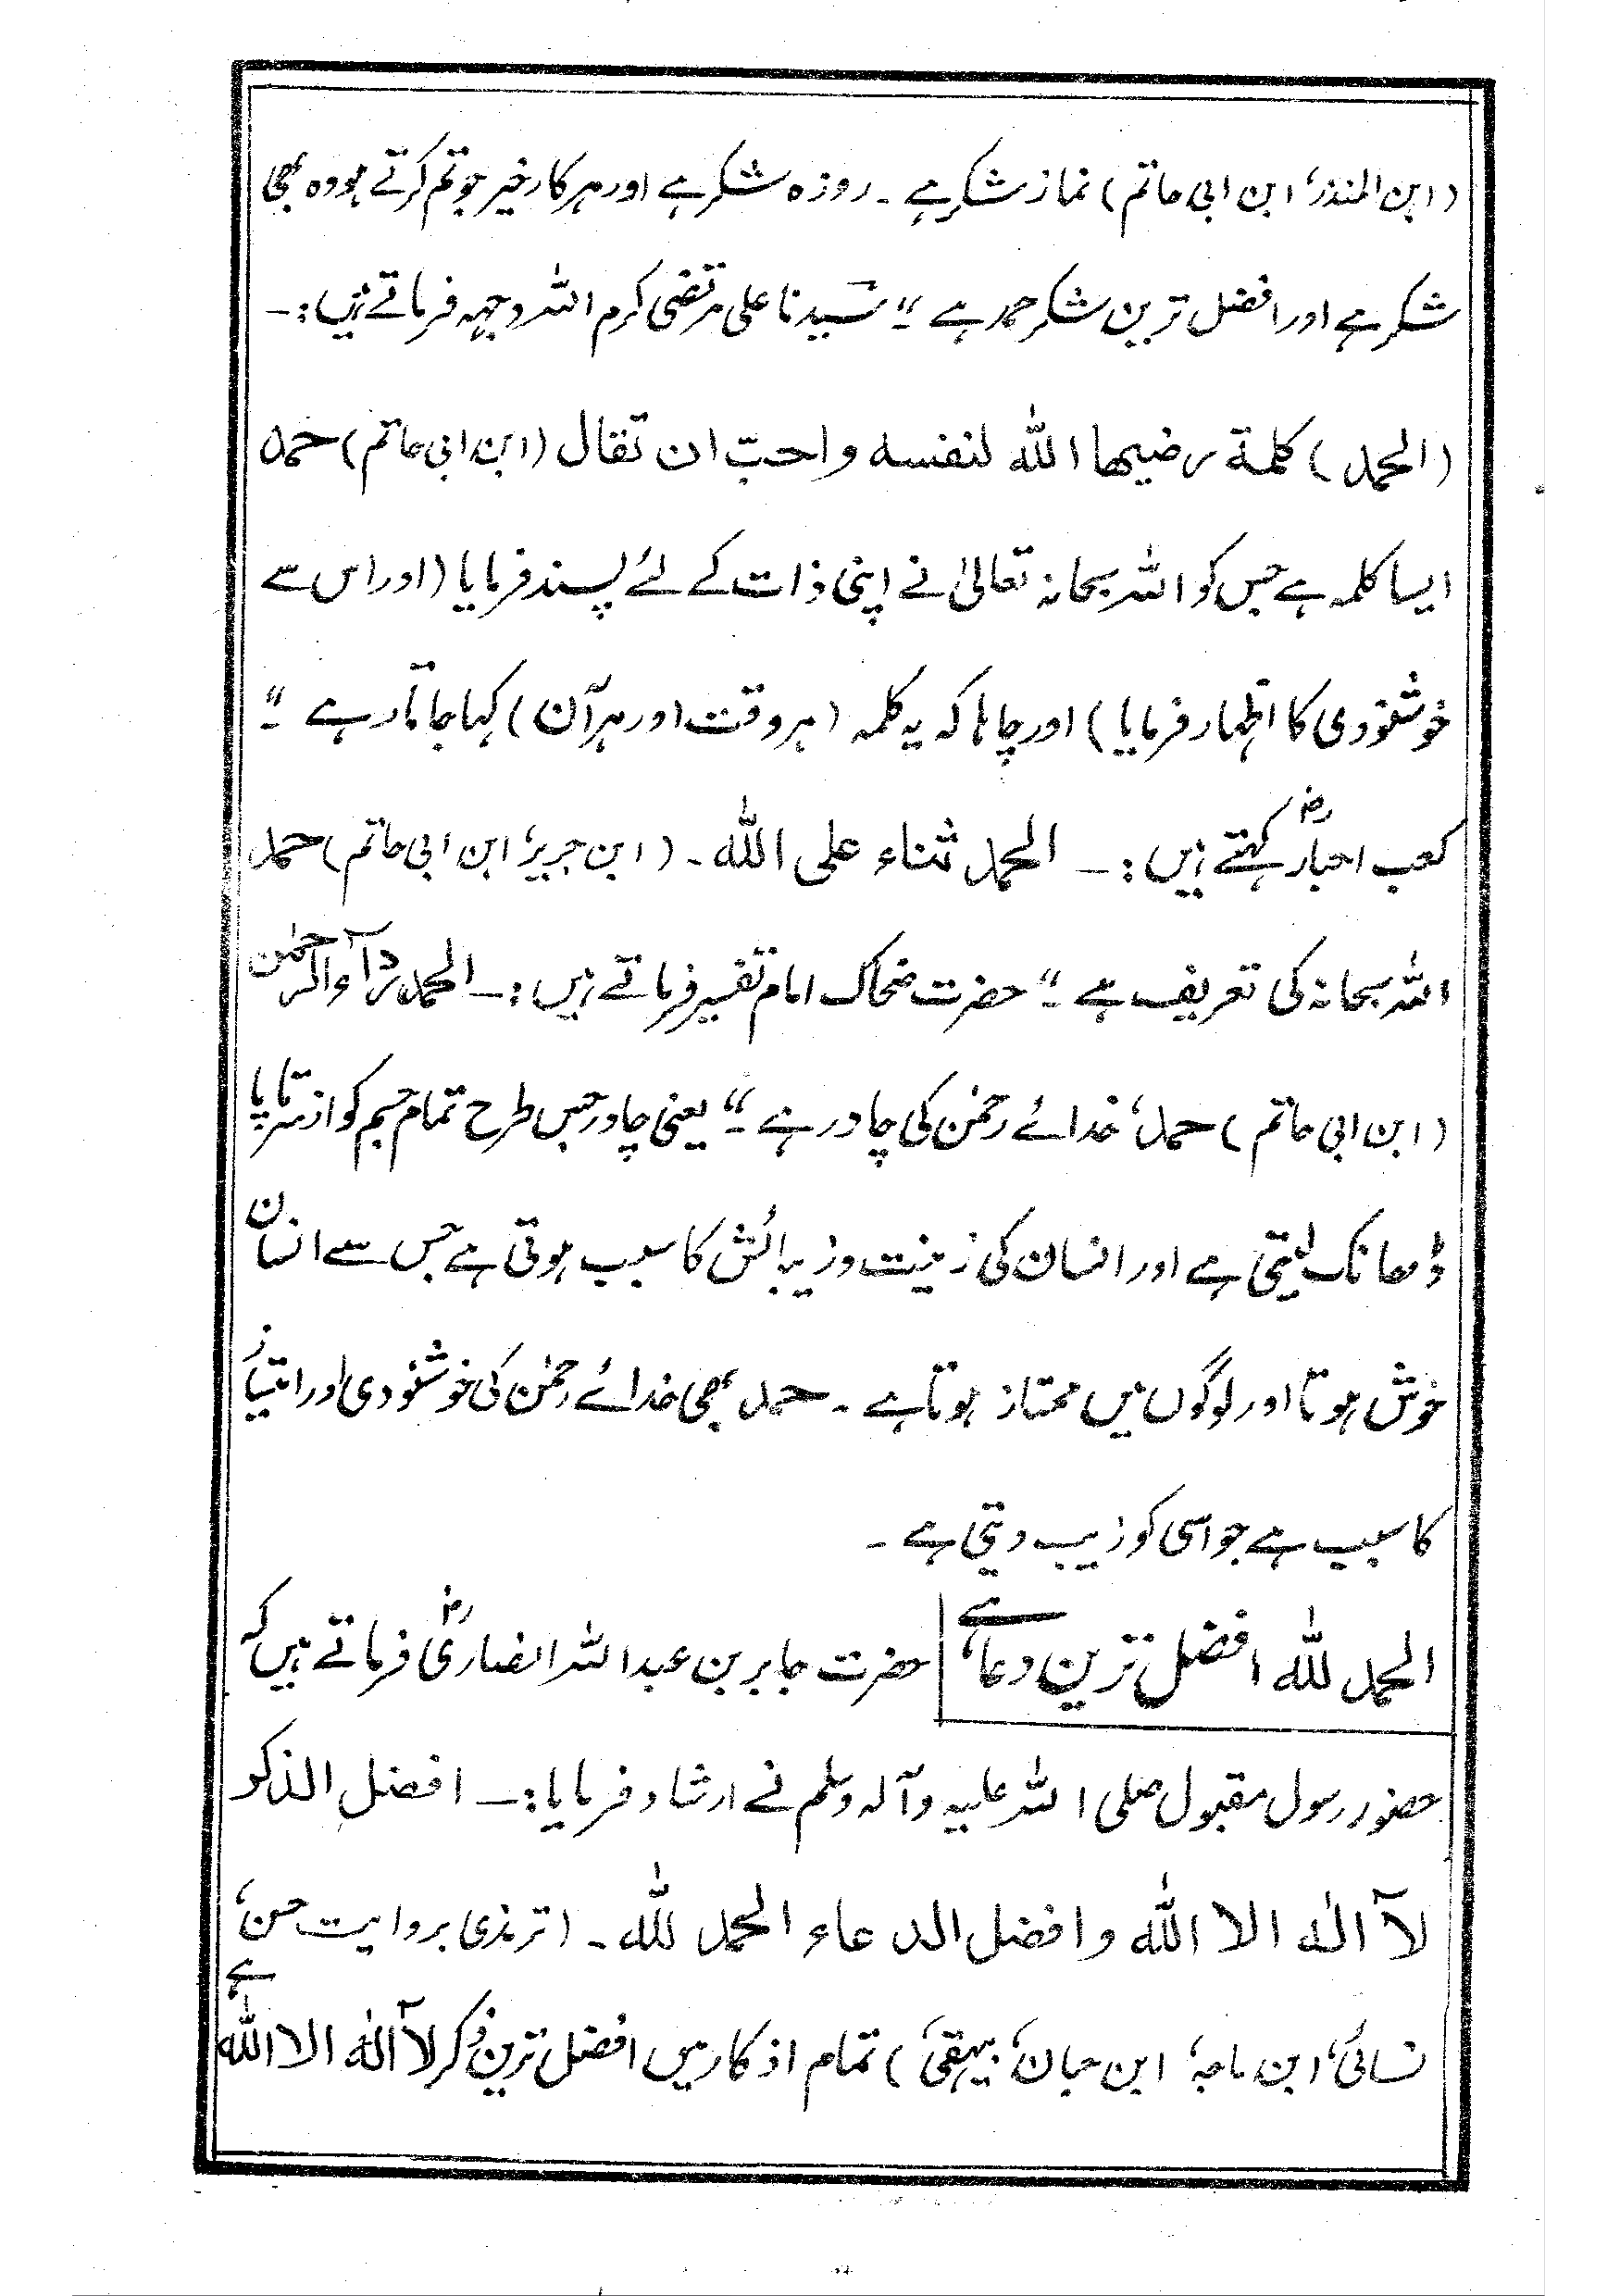 (ابن المنذر، ابن ابی حاتم) نماز شکر ہے ۔ روزہ شکر ہے اور ہر کار خیر جو تم کرتے ہو وہ بھی
شکر ہے اور افضل ترین شکر حمد ہے ۔" سیّدنا علی مرتضیٰ کرم اللہ وجہہ فرماتے ہیں :۔
(الحمد) کلمۃ رضیھا اللّٰہ لنفسہ واحبّ ان تقال (ابن ابی حاتم) حمد
ایسا کلمہ ہے جس کو اللہ سبحانہ تعالیٰ نے اپنی ذات کے لئے پسند فرمایا (اور اس سے
خوشنودی کا اظہار فرمایا) اور چاہا کہ یہ کلمہ (ہر وقت اور ہر آن) کہا جاتا رہے ۔"
کعب احبارؓ کہتے ہیں :۔ الحمد ثناء علی اللّٰہ ۔ (ابن جریر، ابن ابی حاتم) حمد
اللہ سبحانہ کی تعریف ہے ۔" حضرت ضحاک امام تفسیر فرماتے ہیں :۔ الحمد رداؤ الرحمٰن
(ابن ابی حاتم) حمد، خدائے رحمٰن کی چادر ہے ۔" یعنی چادر جس طرح تمام جسم کو از سر تا پا
ڈھانک لیتی ہے اور انسان کی زینت و زیبائش کا سبب ہوتی ہے جس سے انسان
خوش ہوتا اور لوگوں میں ممتاز ہوتا ہے ۔ حمد بھی خدائے رحمٰن کی خوشنودی اور امتیاز
کا سبب ہے جو اسی کو زیب دیتی ہے ۔
الحمد للّٰہ افضل ترین دعاء ہے حضرت جابر بن عبداللہ انصاریؓ فرماتے ہیں کہ
حضور رسول مقبول صلی اللہ علیہ وآلہ وسلم نے ارشاد فرمایا :۔ افضل الذکر
لآ الٰہ الا اللّٰہ وافضل الدعاء الحمد للّٰہ ۔ (ترمذی بروایت حسن،
نسائی، ابن ماجہ، ابن حبان، بیہقی) تمام اذکار میں افضل ترین ذکر لآ الٰہ الا اللّٰہ ہے